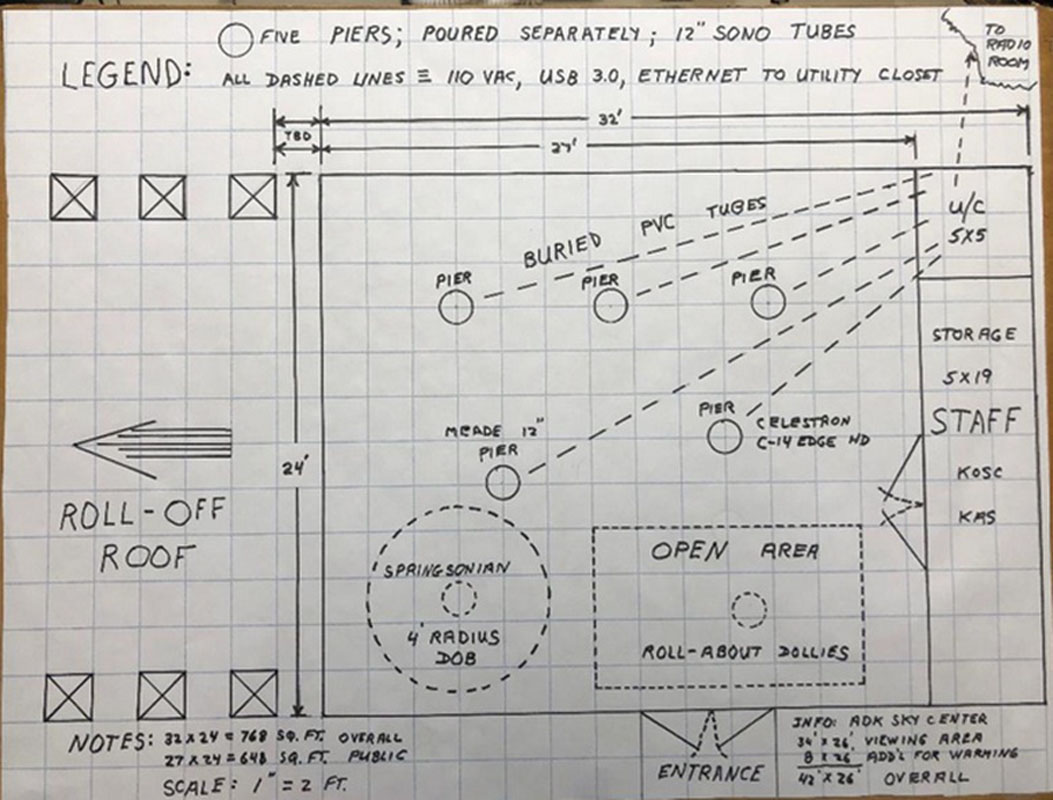 FIVE PIERS; POURED SEPARATELY; 12" SONO TUBES
LEGEND: ALL DASHED LINES ≡ 110 VAC, USB 3.0, ETHERNET TO UTILITY CLOSET
TO
RADIO
ROOM
32'
TBD
27'
BURIED PVC TUBES
U/C
5X5
PIER
PIER
PIER
STORAGE
5X19
STAFF
KOSC
KAS
PIER
CELESTRON
C-14 EDGE HD
MEADE 12"
PIER
24'
ROLL-OFF
ROOF
SPRINGSONIAN
4' RADIUS
DOB
OPEN AREA
ROLL-ABOUT DOLLIES
ENTRANCE
NOTES: 32X24 = 768 SQ. FT. OVERALL
27X24 = 648 SQ. FT. PUBLIC
SCALE: 1" = 2 FT.
INFO: ADK SKY CENTER
34' X 26' VIEWING AREA
8 X 26' ADD'L FOR WARMING
42' X 26' OVERALL